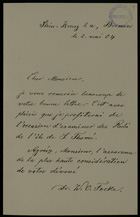 le 2. mai 04
Cher Monsieur,
je vous remercie beaucoup de
votre bonne lettre. C'est avec
plaisir que je profiterai de
l'occasion d'examiner des Rubi
de l'île de S. Thomé.
Agréez, Monsieur, l'assurance
de la plus haute considération
de votre dévoué
Dr. W. O. Focke.